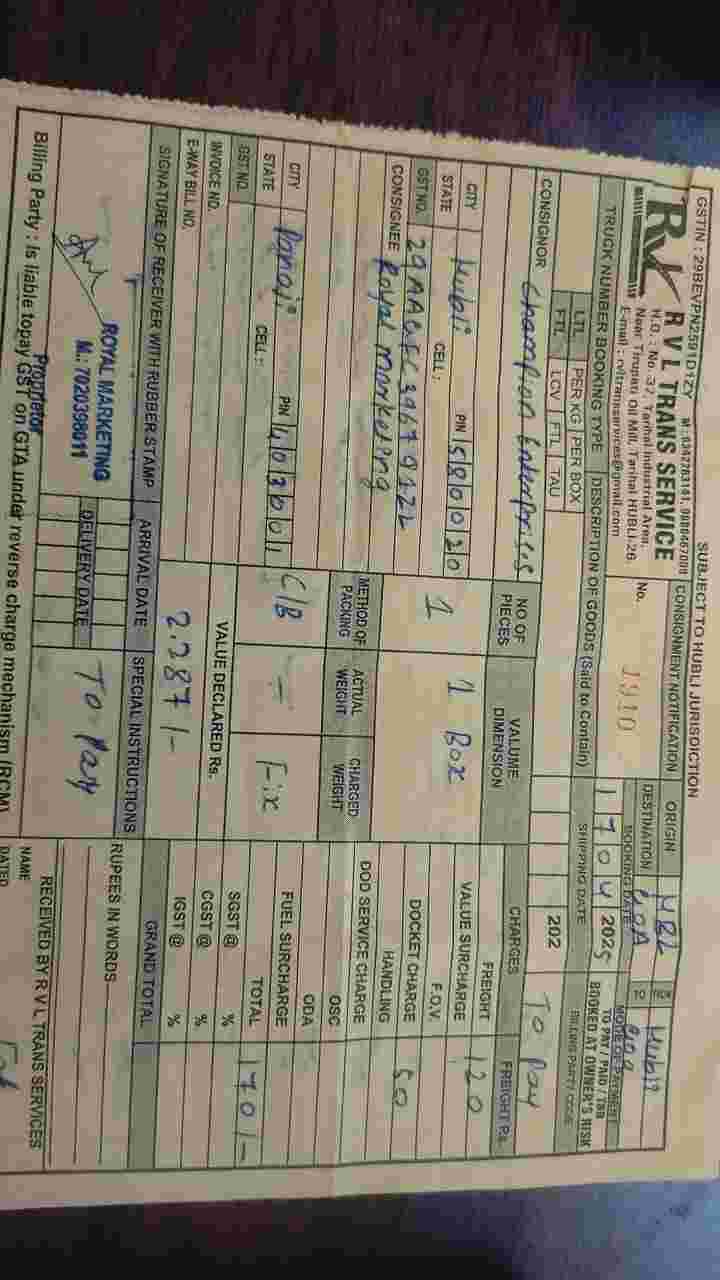 GSTIN : 29BEVPN2591D1ZY
SUBJECT TO HUBLI JURISDICTION
R V L TRANS SERVICE
H.O. : No. 37, Tarihal Industrial Area,
Near Tirupati Oil Mill, Tarihal HUBLI-26
E-mail : rvltransservices@gmail.com
CONSIGNMENT NOTIFICATION
No. 1910
ORIGIN HBL
DESTINATION GOA
PICK Hubli
TO Goa
TRUCK NUMBER BOOKING TYPE
DESCRIPTION OF GOODS (Said to Contain)
BOOKING DATE
17 04 2025
MODE OF PAYMENT
TO PAY / PAID / TBB
BOOKED AT OWNER'S RISK
LTL PER KG PER BOX
FTL LCV FTL TAU
SHIPPING DATE
202
BILLING PARTY CODE
To pay
CONSIGNOR Champion Enterprises
CITY Hubli PIN 580020
STATE CELL :
GST NO.
CONSIGNEE Royal marketing
CITY Panaji PIN 403001
STATE CELL :
GST NO.
INVOICE NO.
E-WAY BILL NO.
NO OF PIECES
1
VALUME DIMENSION
1 Box
METHOD OF PACKING
C/B
ACTUAL WEIGHT
-
CHARGED WEIGHT
Fix
VALUE DECLARED Rs.
2.287/-
CHARGES FREIGHT Rs.
FREIGHT 120
VALUE SURCHARGE
F.O.V.
DOCKET CHARGE 50
HANDLING
DOD SERVICE CHARGE
OSC
ODA
FUEL SURCHARGE
TOTAL 170/-
SGST @ %
CGST @ %
IGST @ %
GRAND TOTAL
SIGNATURE OF RECEIVER WITH RUBBER STAMP
ROYAL MARKETING
M.: 7020398011
Proprietor
ARRIVAL DATE
DELIVERY DATE
SPECIAL INSTRUCTIONS
To Pay
RUPEES IN WORDS
Billing Party : Is liable topay GST on GTA under reverse charge mechanism (RCM)
RECEIVED BY R V L TRANS SERVICES
NAME
DATED